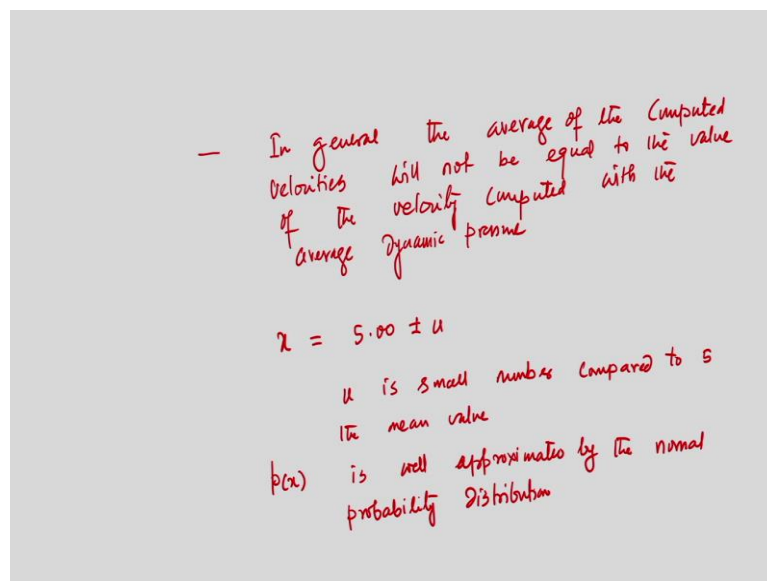 — In general the average of the Computed
velocities will not be equal to the value
of the velocity computed with the
average Dynamic pressure
x = 5.00 ± u
u is small number compared to 5
the mean value
p(x) is well approximated by the normal
probability Distribution